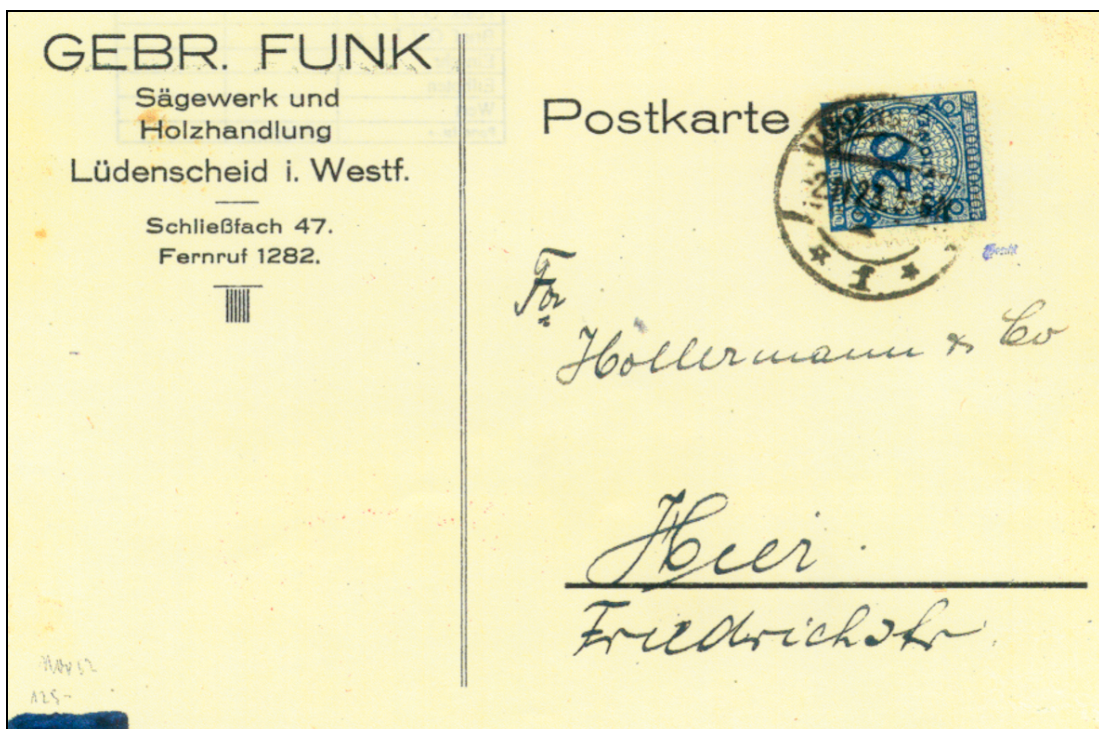 GEBR. FUNK
Sägewerk und
Holzhandlung
Lüdenscheid i. Westf.
Schließfach 47.
Fernruf 1282.
Postkarte
20
23.5-6N
* f *
Fa
Hollermann & Co
Hier.
Friedrichstr.
125-